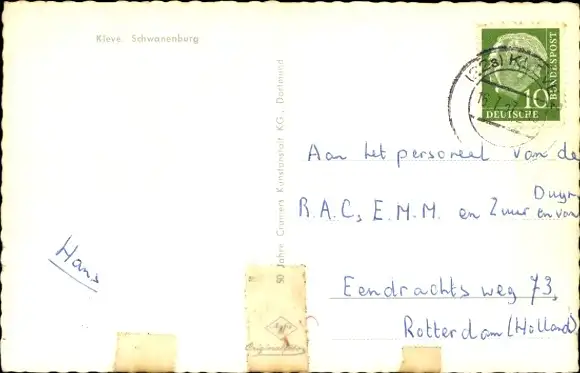 Kleve. Schwanenburg
50 Jahre Cramers Kunstanstalt KG., Dortmund
10
DEUTSCHE
BUNDESPOST
Aan het personeel van de
R.A.C, E.M.M. en Zuur en van
Duyn
Eendrachts weg 73,
Rotterdam (Holland)
Hans